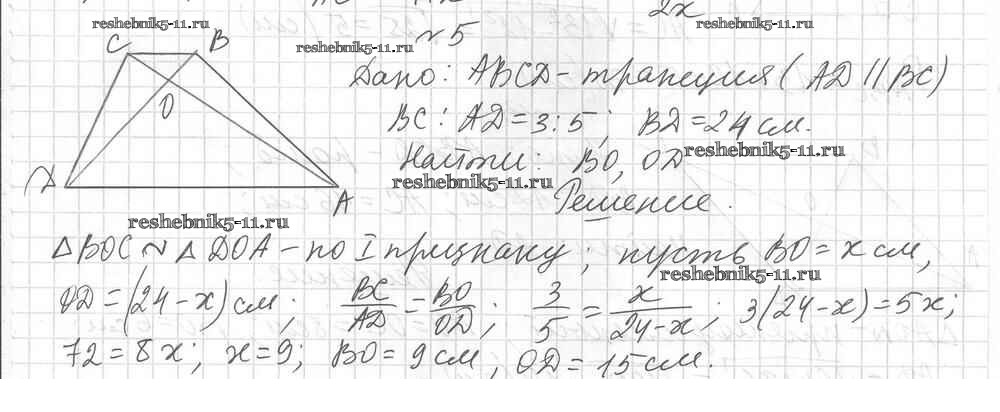 2x
reshebnik5-11.ru
№5
reshebnik5-11.ru
C B
O
D A
Дано: ABCD - трапеция (AD || BC)
BC : AD = 3 : 5; BD = 24 см.
Найти: BO, OD
reshebnik5-11.ru
reshebnik5-11.ru
Решение.
reshebnik5-11.ru
△BOC ~ △DOA - по I признаку; пусть BO = x см,
reshebnik5-11.ru
OD = (24 - x) см; BC/AD = BO/OD; 3/5 = x/24-x; 3(24 - x) = 5x;
72 = 8x; x = 9; BO = 9 см, OD = 15 см.